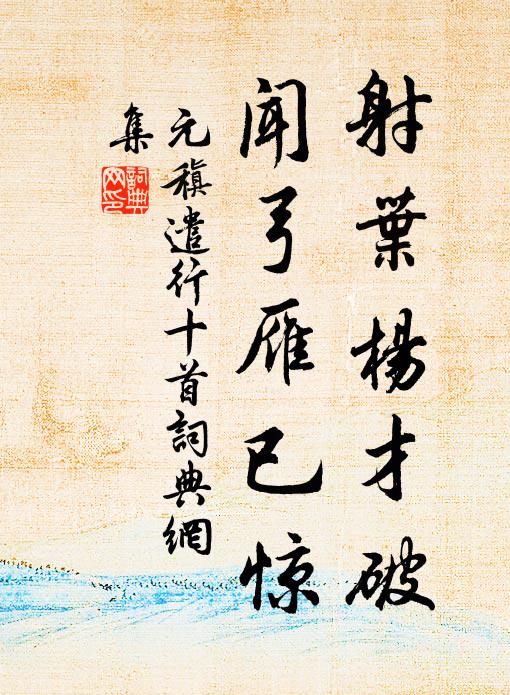 射葉楊才破
聞弓雁已惊
元稹遣行十首詞典網
集
詞典
网印